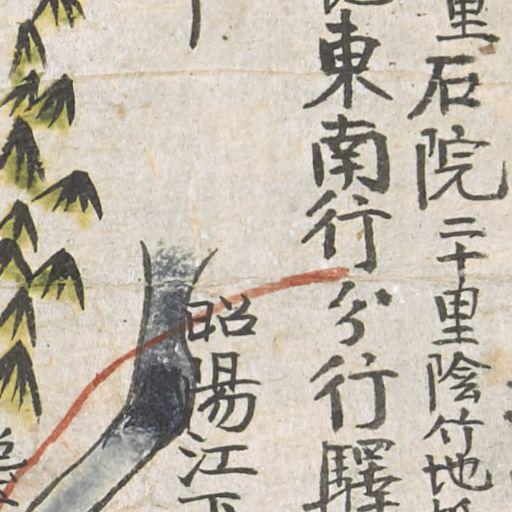 里石院二十里陰竹地
東南行分行驛
昭陽江下